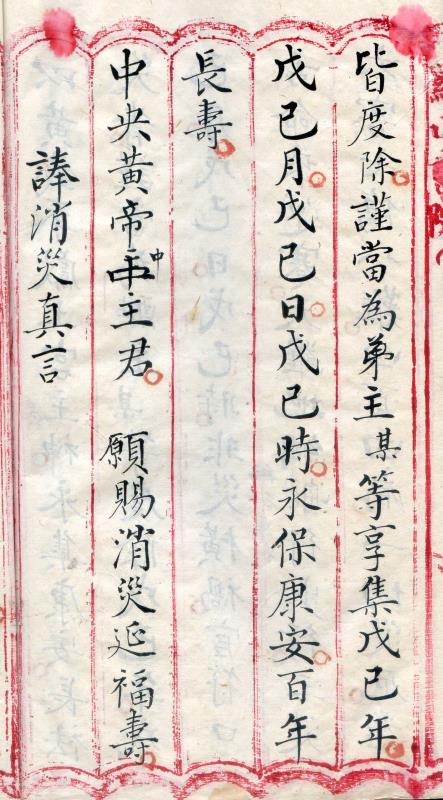 皆度除謹當為弟主某等享集戊己年
戊己月戊己日戊己時永保康安百年
長壽
中央黃帝中主君 願賜消災延福壽
諱消災真言